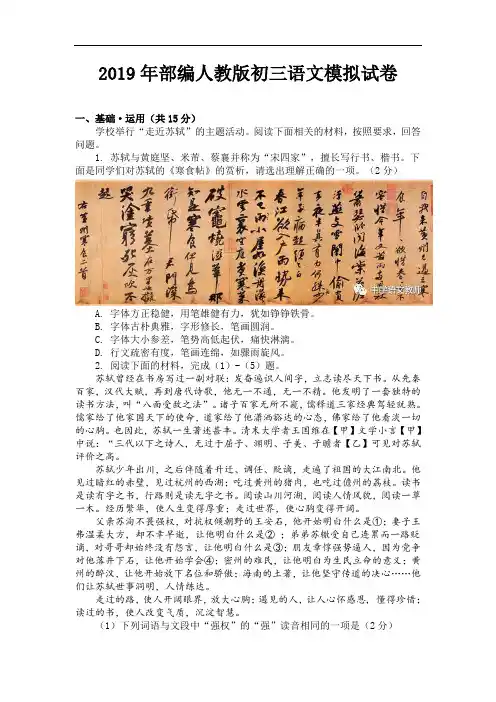 2019年部编人教版初三语文模拟试卷
一、基础·运用（共15分）
学校举行“走近苏轼”的主题活动。阅读下面相关的材料，按照要求，回答
问题。
1. 苏轼与黄庭坚、米芾、蔡襄并称为“宋四家”，擅长写行书、楷书。下
面是同学们对苏轼的《寒食帖》的赏析，请选出理解正确的一项。（2分）
自我來黃州已過三寒
右黃州寒食二首
中学语文教师
A. 字体方正稳健，用笔雄健有力，犹如铮铮铁骨。
B. 字体古朴典雅，字形修长，笔画圆润。
C. 字体大小参差，笔势高低起伏，痛快淋漓。
D. 行文疏密有度，笔画连绵，如骤雨旋风。
2. 阅读下面的材料，完成（1）-（5）题。
苏轼曾经在书房写过一副对联：发奋遍识人间字，立志读尽天下书。从先秦
百家，汉代大赋，再到唐代诗歌，他无一不通，无一不精。他发明了一套独特的
读书方法，叫“八面受敌之法”。诸子百家无所不窥，儒释道三家经典驾轻就熟。
儒家给了他家国天下的使命，道家给了他潇洒豁达的心态，佛家给了他看淡一切
的心胸。也因此，苏轼一生著述甚丰。清末大学者王国维在【甲】文学小言【甲】
中说：“三代以下之诗人，无过于屈子、渊明、子美、子瞻者【乙】可见对苏轼
评价之高。
苏轼少年出川，之后伴随着升迁、调任、贬谪，走遍了祖国的大江南北。他
见过暗红的赤壁，见过杭州的西湖；吃过黄州的猪肉，也吃过儋州的荔枝。读书
是读有字之书，行路则是读无字之书。阅读山川河湖，阅读人情风貌，阅读一草
一木。经历繁华，使人生变得厚重；走过世界，使心胸变得开阔。
父亲苏洵不畏强权，对抗权倾朝野的王安石，他开始明白什么是①；妻子王
弗温柔大方，却不幸早逝，让他明白什么是②；弟弟苏辙受自己连累而一路贬
谪，对哥哥却始终没有怨言，让他明白什么是③；朋友章惇强势逼人，因为党争
对他落井下石，让他开始学会④；密州的难民，让他明白为生民立命的意义；黄
州的醉汉，让他开始放下名位和骄傲；海南的土著，让他坚守传道的决心……他
们让苏轼世事洞明，人情练达。
走过的路，使人开阔眼界，放大心胸；遇见的人，让人心怀感恩，懂得珍惜；
读过的书，使人改变气质，沉淀智慧。
（1）下列词语与文段中“强权”的“强”读音相同的一项是（2分）